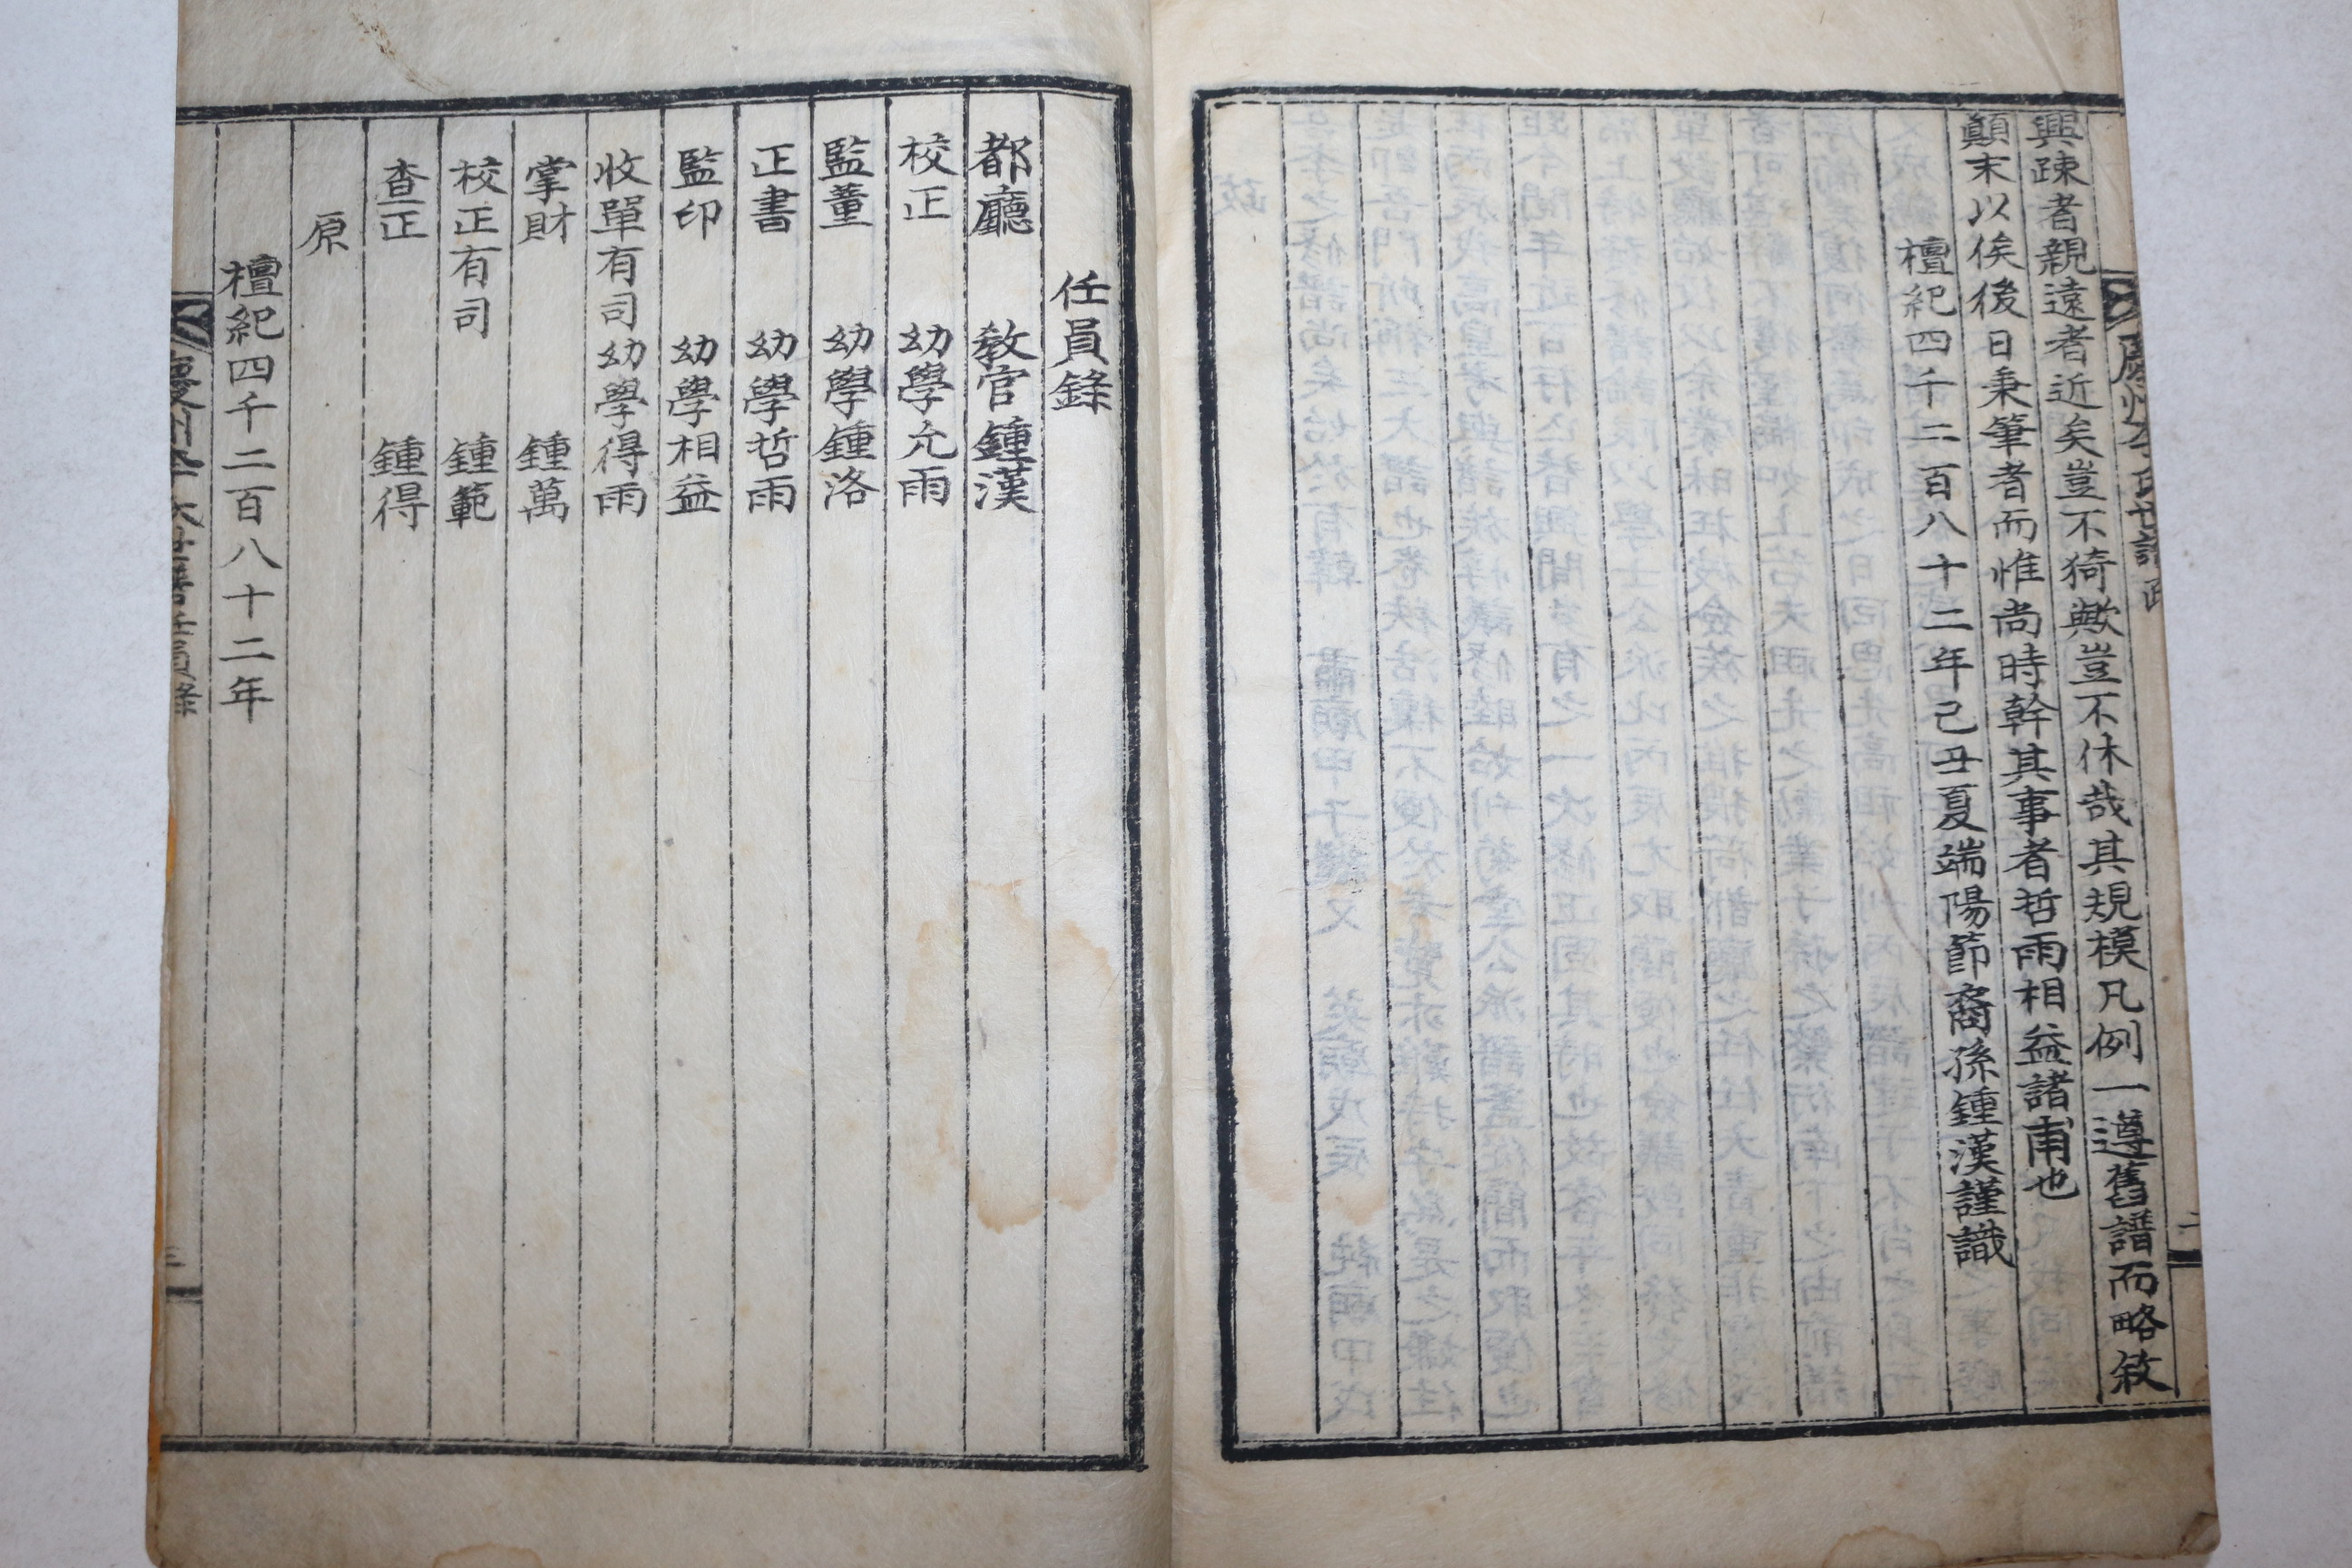 慶州李氏世譜 跋
二
興疎者親遠者近矣豈不猗歟豈不休哉其規模凡例一遵舊譜而略敘
顛末以俟後日秉筆者而惟尚時幹其事者哲雨相益諸甫也
檀紀四千二百八十二年己丑夏端陽節裔孫鍾漢謹識
任員錄
都廳 敎官鍾漢
校正 幼學允雨
監董 幼學鍾洛
正書 幼學哲雨
監印 幼學相益
收單有司幼學得雨
掌財 鍾萬
校正有司 鍾範
查正 鍾得
原
檀紀四千二百八十二年
慶州李氏世譜任員錄
三